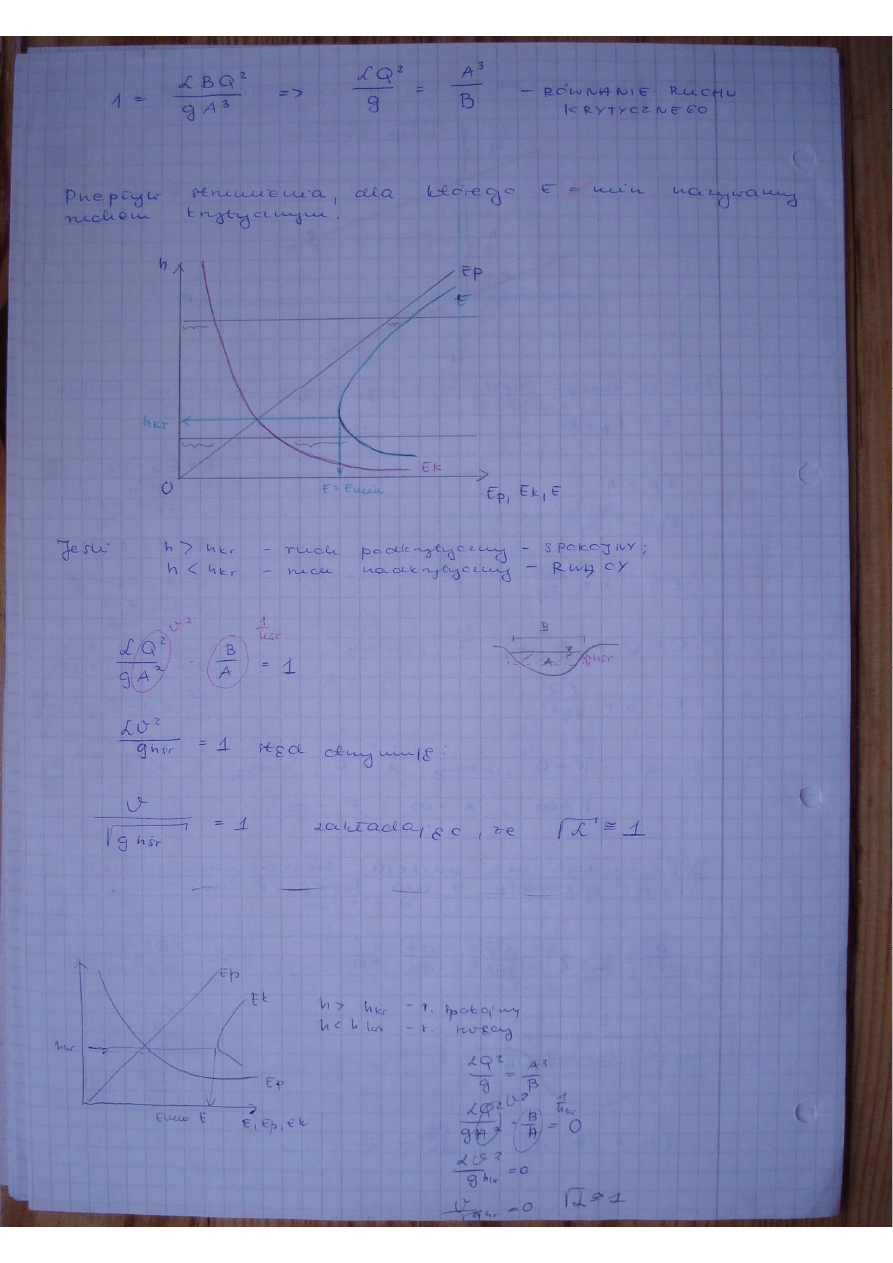 1 = αBQ²/gA³ => αQ²/g = A³/B – RÓWNANIE RUCHU
KRYTYCZNEGO
Przepływ strumienia, dla którego E = min nazywamy
ruchem krytycznym.
h
Ep
E
hkr
Ek
0
E = Emin
Ep, Ek, E
Jeśli: h > hkr – ruch podkrytyczny – SPOKOJNY;
h < hkr – ruch nadkrytyczny – RWĄCY
υ² 1/hśr
αQ²/gA² · B/A = 1
B
A
hśr
αυ²/ghśr = 1 stąd otrzymuję:
υ/√ghśr = 1 zakładając, że √α ≅ 1
Ep
Ek
hkr
Ep
Emin E
E, Ep, Ek
h > hkr – r. spokojny
h < hkr – r. rwący
αQ²/g = A³/B
υ² 1/hśr
αQ²/gA² · B/A = 0
αυ²/ghśr = 0
υ/√ghśr = 0 √α ≅ 1